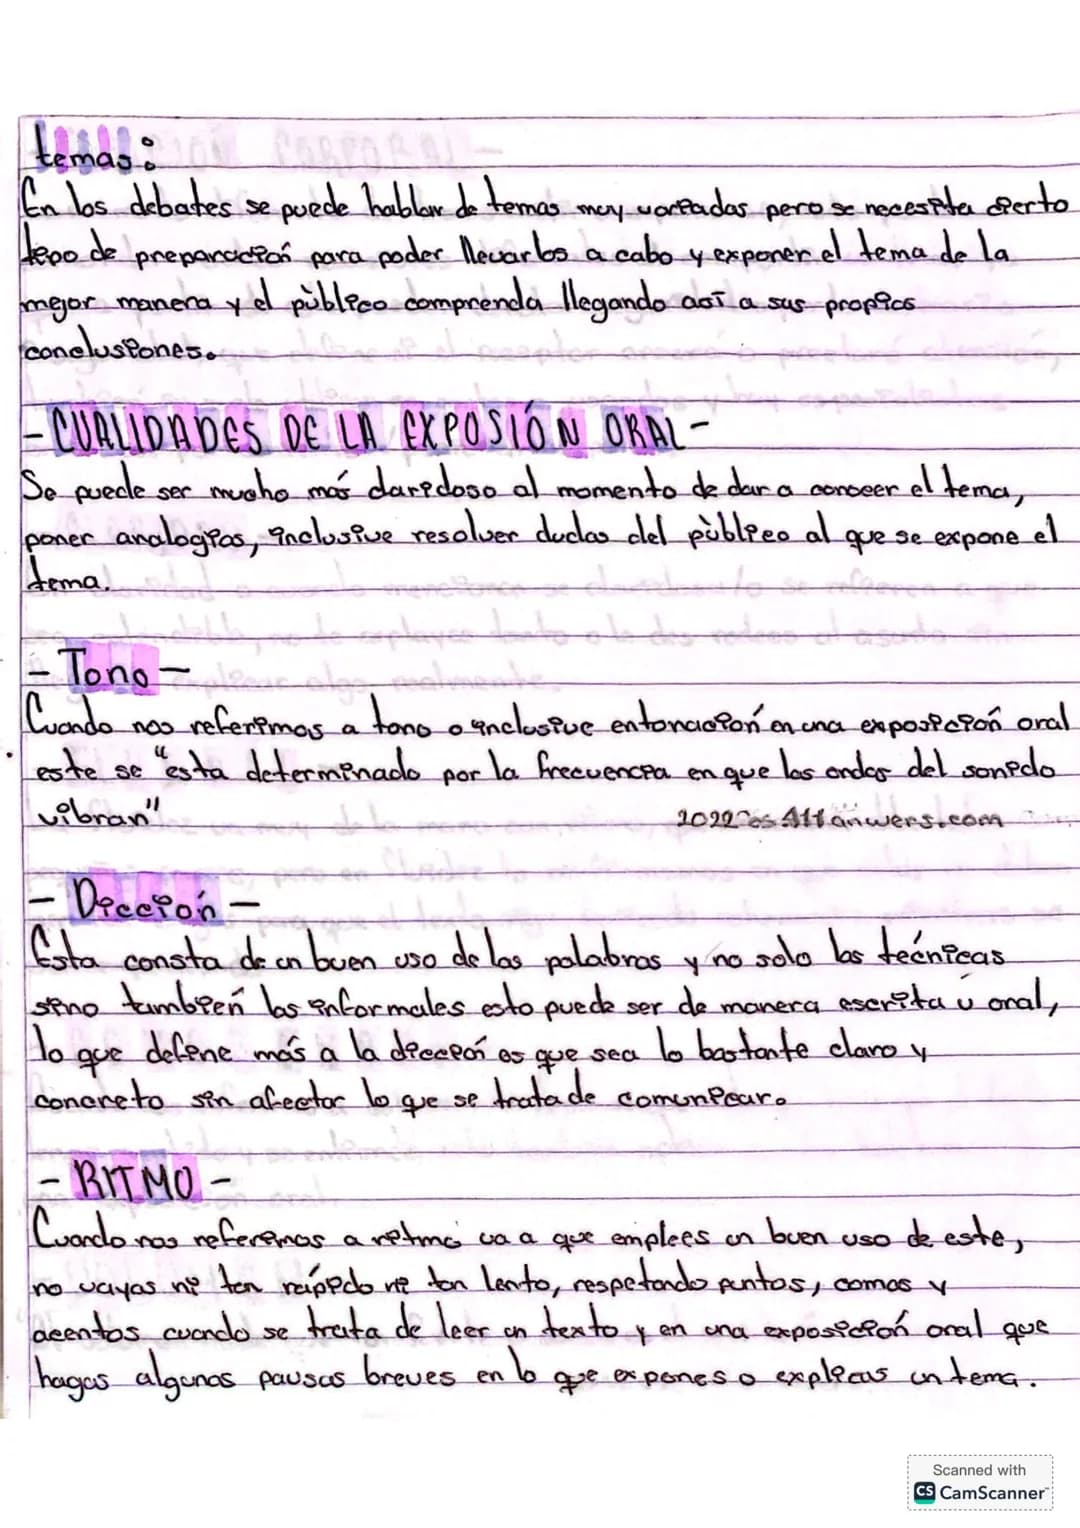 temas:
En los debates se puede hablar de temas muy variadas pero se necesita cierto
tipo de preparación para poder llevarlos a cabo y exponer el tema de la
mejor manera y el pùblico comprenda llegando así a sus propias
conclusiones.
- CUALIDADES DE LA EXPOSIÓN ORAL -
Se puede ser mucho más daridoso al momento de dar a conocer el tema,
poner analogias, inclusive resolver dudas del pùblico al que se expone el
tema.
- Tono -
Cuando nos referimos a tono o inclusive entonación en una exposición oral
este se "esta determinado por la frecuencia en que las ondas del sonido
vibran"
2022 es.411anwers.com
- Dicción -
Esta consta de un buen uso de las palabras y no solo las técnicas
sino también las informales esto puede ser de manera escrita u oral,
lo que define más a la dicción es que sea lo bastante claro y
concreto sin afectar lo que se trata de comunicar.
- RITMO -
Cuando nos referimos a ritmo va a que emplees un buen uso de este,
no vayas ni tan rápido ni tan lento, respetando puntos, comas y
acentos cuando se trata de leer un texto y en una exposición oral que
hagas algunas pausas breves en lo que expones o explicas un tema.
Scanned with
CS CamScanner